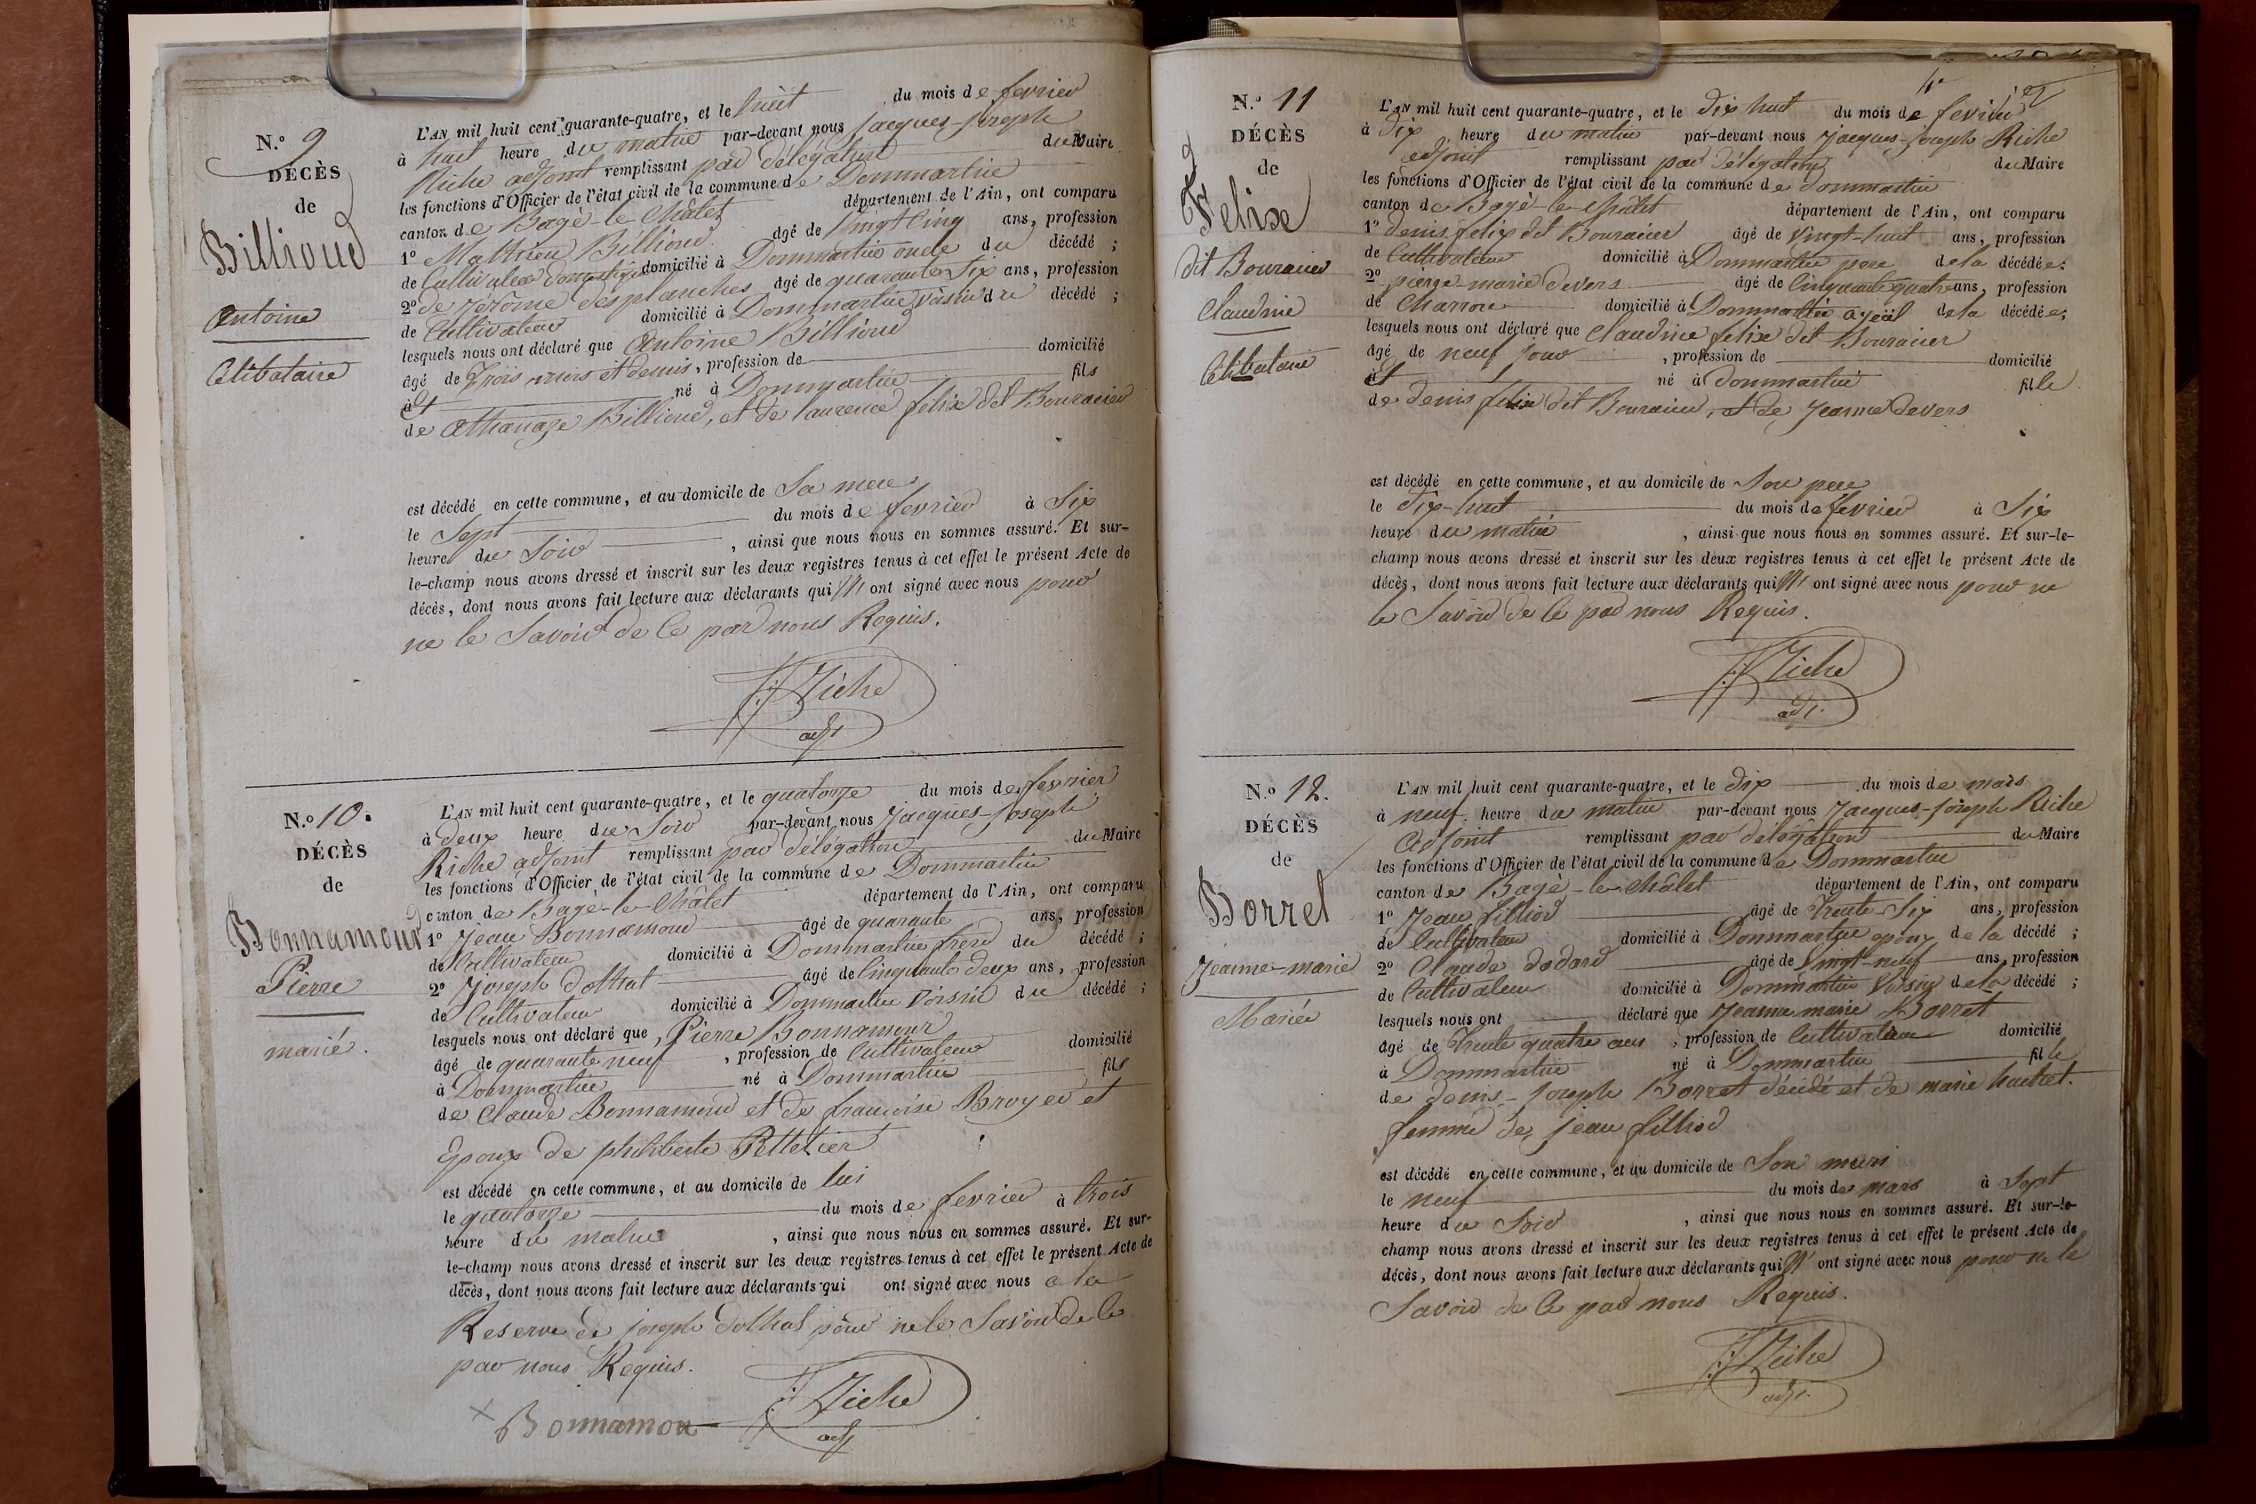 N.º 9
DÉCÈS
de
Billioud
Antoine
Célibataire
L'AN mil huit cent quarante-quatre, et le huit du mois de fevrier
à huit heure du matin par-devant nous Jacques-Joseph
Riche adjoint remplissant par délégation du Maire
les fonctions d'Officier de l'état civil de la commune de Dommartin
canton de Bagé-le-Châtel département de l'Ain, ont comparu
1º Mathieu Billioud âgé de vingt cinq ans, profession
de Cultivateur domestique domicilié à Dommartin oncle du décédé ;
2º de Jérôme desplanches âgé de quarante six ans, profession
de Cultivateur domicilié à Dommartin voisin du décédé ;
lesquels nous ont déclaré que Antoine Billioud
âgé de Trois mois et demis, profession de domicilié
à et né à Dommartin fils
de Athanaze Billioud, et de laurence felix dit Bouracier
est décédé en cette commune, et au domicile de Sa mere
le Sept du mois de fevrier à Six
heure du Soir , ainsi que nous nous en sommes assuré. Et sur-
le-champ nous avons dressé et inscrit sur les deux registres tenus à cet effet le présent Acte de
décès, dont nous avons fait lecture aux déclarants qui n'ont signé avec nous pour
ne le Savoir de Ce par nous Requis.
JJ Riche
adj.
N.º 10.
DÉCÈS
de
Bonnamour
Pierre
marié.
L'AN mil huit cent quarante-quatre, et le quatorze du mois de fevrier
à deux heure du Soir par-devant nous Jacques-Joseph
Riche adjoint remplissant par délégation du Maire
les fonctions d'Officier de l'état civil de la commune de Dommartin
canton de Bagé-le-Châtel département de l'Ain, ont comparu
1º Jean Bonnamour âgé de quarante ans, profession
de Cultivateur domicilié à Dommartin frère du décédé ;
2º Joseph dothal âgé de Cinquante deux ans, profession
de Cultivateur domicilié à Dommartin voisin du décédé ;
lesquels nous ont déclaré que Pierre Bonnamour
âgé de quarante neuf , profession de Cultivateur domicilié
à Dommartin né à Dommartin fils
de Claude Bonnamour et de francoise Broyer et
Epoux de philiberte Pelletier
est décédé en cette commune, et au domicile de lui
le quatorze du mois de fevrier à trois
heure du matin , ainsi que nous nous en sommes assuré. Et sur-
le-champ nous avons dressé et inscrit sur les deux registres tenus à cet effet le présent Acte de
décès, dont nous avons fait lecture aux déclarants qui ont signé avec nous a la
Reserve de joseph dothal pour ne le Savoir de Ce
par nous Requis.
Bonnamour
JJ Riche
adj
N.º 11
DÉCÈS
de
Felix
dit Bouracier
Claudine
Célibataire
L'AN mil huit cent quarante-quatre, et le dix huit du mois de fevrier
à dix heure du matin par-devant nous Jacques-Joseph Riche
adjoint remplissant par délégation du Maire
les fonctions d'Officier de l'état civil de la commune de Dommartin
canton de Bagé-le-Châtel département de l'Ain, ont comparu
1º denis felix dit Bouracier âgé de Vingt-huit ans, profession
de Cultivateur domicilié à Dommartin pere de la décédée;
2º pierre-marie devers âgé de Cinquante quatre ans, profession
de Charron domicilié à Dommartin ayeül de la décédée;
lesquels nous ont déclaré que Claudine felix dit Bouracier
âgé de neuf jour , profession de domicilié
à et né à dommartin fille
de denis felix dit Bouracier, et de Jeanne devers
est décédé en cette commune, et au domicile de Son pere
le dix-huit du mois de fevrier à Six
heure du matin , ainsi que nous nous en sommes assuré. Et sur-le-
champ nous avons dressé et inscrit sur les deux registres tenus à cet effet le présent Acte de
décès, dont nous avons fait lecture aux déclarants qui n'ont signé avec nous pour ne
le Savoir de Ce par nous Requis.
JJ Riche
adj.
N.º 12.
DÉCÈS
de
Borret
Jeanne-marie
Mariée
L'AN mil huit cent quarante-quatre, et le dix du mois de mars
à neuf heure du matin par-devant nous Jacques-Joseph Riche
Adjoint remplissant par délégation du Maire
les fonctions d'Officier de l'état civil de la commune de Dommartin
canton de Bagé-le-Châtel département de l'Ain, ont comparu
1º Jean filliod âgé de Trente Six ans, profession
de Cultivateur domicilié à Dommartin epoux de la décédé ;
2º Claude dodard âgé de Vingt-neuf ans, profession
de Cultivateur domicilié à Dommartin Voisin de la décédé ;
lesquels nous ont déclaré que Jeanne marie Borret
âgé de Trente quatre ans , profession de Cultivateur domicilié
à Dommartin né à Dommartin fille
de denis-Joseph Borret décédé et de marie huchet.
femme de jean filliod
est décédé en cette commune, et au domicile de Son mari
le neuf du mois de mars à Sept
heure du Soir , ainsi que nous nous en sommes assuré. Et sur-le-
champ nous avons dressé et inscrit sur les deux registres tenus à cet effet le présent Acte de
décès, dont nous avons fait lecture aux déclarants qui n'ont signé avec nous pour ne le
Savoir de Ce par nous Requis.
JJ Riche
adj.